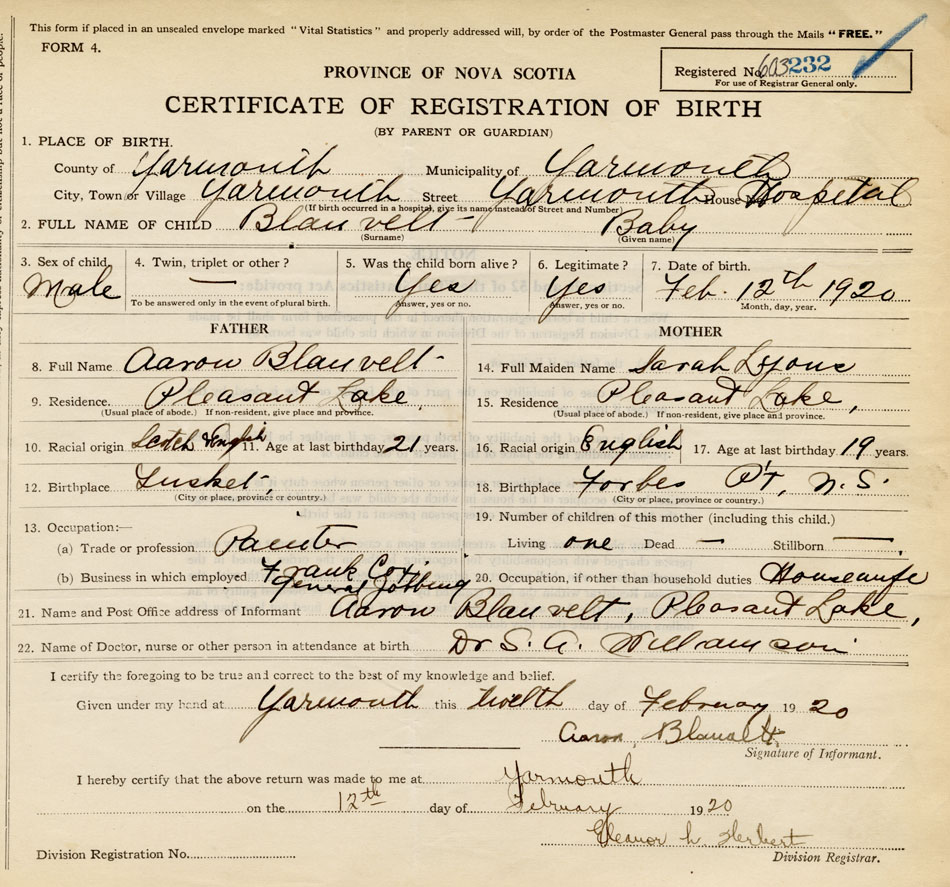 This form if placed in an unsealed envelope marked "Vital Statistics" and properly addressed will, by order of the Postmaster General pass through the Mails "FREE."
FORM 4.
Registered No. 603232
For use of Registrar General only.
PROVINCE OF NOVA SCOTIA
CERTIFICATE OF REGISTRATION OF BIRTH
(BY PARENT OR GUARDIAN)
1. PLACE OF BIRTH.
County of Yarmouth Municipality of Yarmouth
City, Town or Village Yarmouth Street Yarmouth House Hospital
(If birth occurred in a hospital, give its name instead of Street and Number)
2. FULL NAME OF CHILD Blauvelt Baby
(Surname) (Given name)
3. Sex of child. 4. Twin, triplet or other? 5. Was the child born alive? 6. Legitimate? 7. Date of birth.
Male — Yes Yes Feb. 12th 1920
To be answered only in the event of plural birth. Answer, yes or no. Answer, yes or no. Month, day, year.
FATHER MOTHER
8. Full Name Aaron Blauvelt 14. Full Maiden Name Sarah Lyons
9. Residence. Pleasant Lake, 15. Residence Pleasant Lake,
(Usual place of abode.) If non-resident, give place and province. (Usual place of abode.) If non-resident, give place and province.
10. Racial origin Scotch & English 11. Age at last birthday 21 years. 16. Racial origin English 17. Age at last birthday 19 years.
12. Birthplace Tusket, 18. Birthplace Forbes Pt, N.S.
(City or place, province or country.) (City or place, province or country.)
13. Occupation:— 19. Number of children of this mother (including this child.)
(a) Trade or profession Painter Living one Dead — Stillborn —,
(b) Business in which employed Frank Cox, General Jobbing 20. Occupation, if other than household duties Housewife
21. Name and Post Office address of Informant Aaron Blauvelt, Pleasant Lake,
22. Name of Doctor, nurse or other person in attendance at birth Dr S. A. Williamson
I certify the foregoing to be true and correct to the best of my knowledge and belief.
Given under my hand at Yarmouth this twelth day of February 1920
Aaron Blauvelt
Signature of Informant.
I hereby certify that the above return was made to me at Yarmouth
on the 12th day of February 1920
Eleanor h Herbert
Division Registration No. Division Registrar.